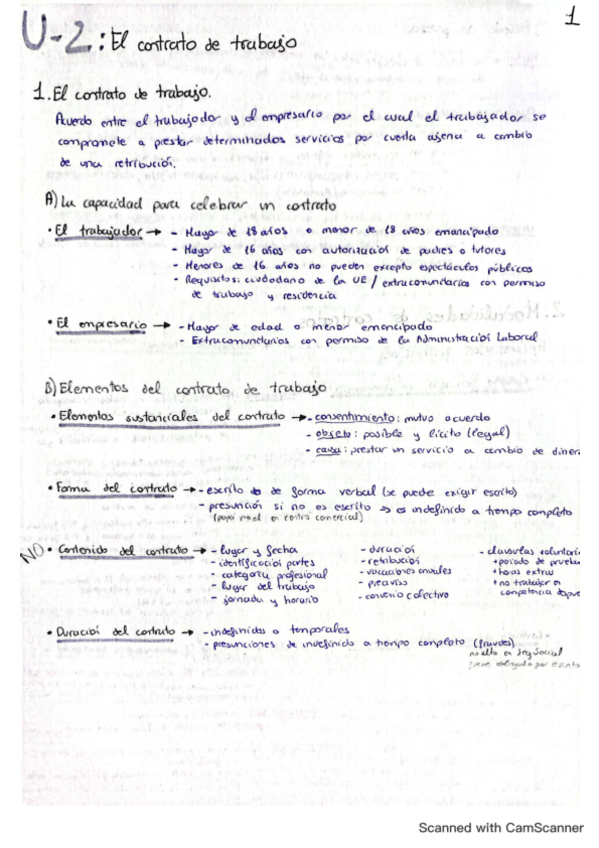 1
U-2.: El contrato de trabajo
1. El contrato de trabajo.
Acuerdo entre el trabajador y el empresario por el cual el trabajador se
compromete a prestar determinados servicios por cuenta ajena a cambio
de una retribución.
A) La capacidad para celebrar un contrato
• El trabajador → - Mayor de 18 años o menor de 18 años emancipado
- Mayor de 16 años con autorización de padres o tutores
- Menores de 16 años no pueden excepto espectáculos públicos
- Requisitos: ciudadano de la UE / extracomunitarios con permiso
de trabajo y residencia
• El empresario → - Mayor de edad o menor emancipado
- Extracomunitarios con permiso de la Administración Laboral
B) Elementos del contrato de trabajo
• Elementos sustanciales del contrato → - consentimiento: mutuo acuerdo
- objeto: posible y lícito (legal)
- causa: prestar un servicio a cambio de diner
• Forma del contrato → - escrito o de forma verbal (se puede exigir escrito)
- presunción si no es escrito => es indefinido a tiempo completo
(papá noel en centro comercial)
NO • Contenido del contrato → - lugar y fecha - duración - clausulas voluntari
- identificación partes - retribución + periodo de prueba
- categoría profesional - vacaciones anuales + horas extras
- lugar del trabajo - preaviso + no trabajar en
- jornada y horario - convenio colectivo competencia
• Duración del contrato → - indefinidos o temporales
- presunciones de indefinido a tiempo completo (fraudes)
no alta en Seg Social
Scanned with CamScanner